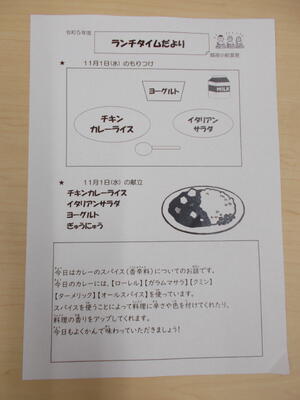 令和5年度
ランチタイムだより
★ 11月1日(水)のもりつけ
ヨーグルト
MILK
チキン
カレーライス
イタリアン
サラダ
★ 11月1日(水)の献立
チキンカレーライス
イタリアンサラダ
ヨーグルト
ぎゅうにゅう
今日はカレーのスパイス(香辛料)についてのお話です。
今日のカレーには、【ローレル】【ガラムマサラ】【クミン】
【ターメリック】【オールスパイス】を使っています。
スパイスを使うことによって料理に辛さや色を付けてくれたり、
料理の香りをアップしてくれます。
今日もよくかんで味わっていただきましょう!